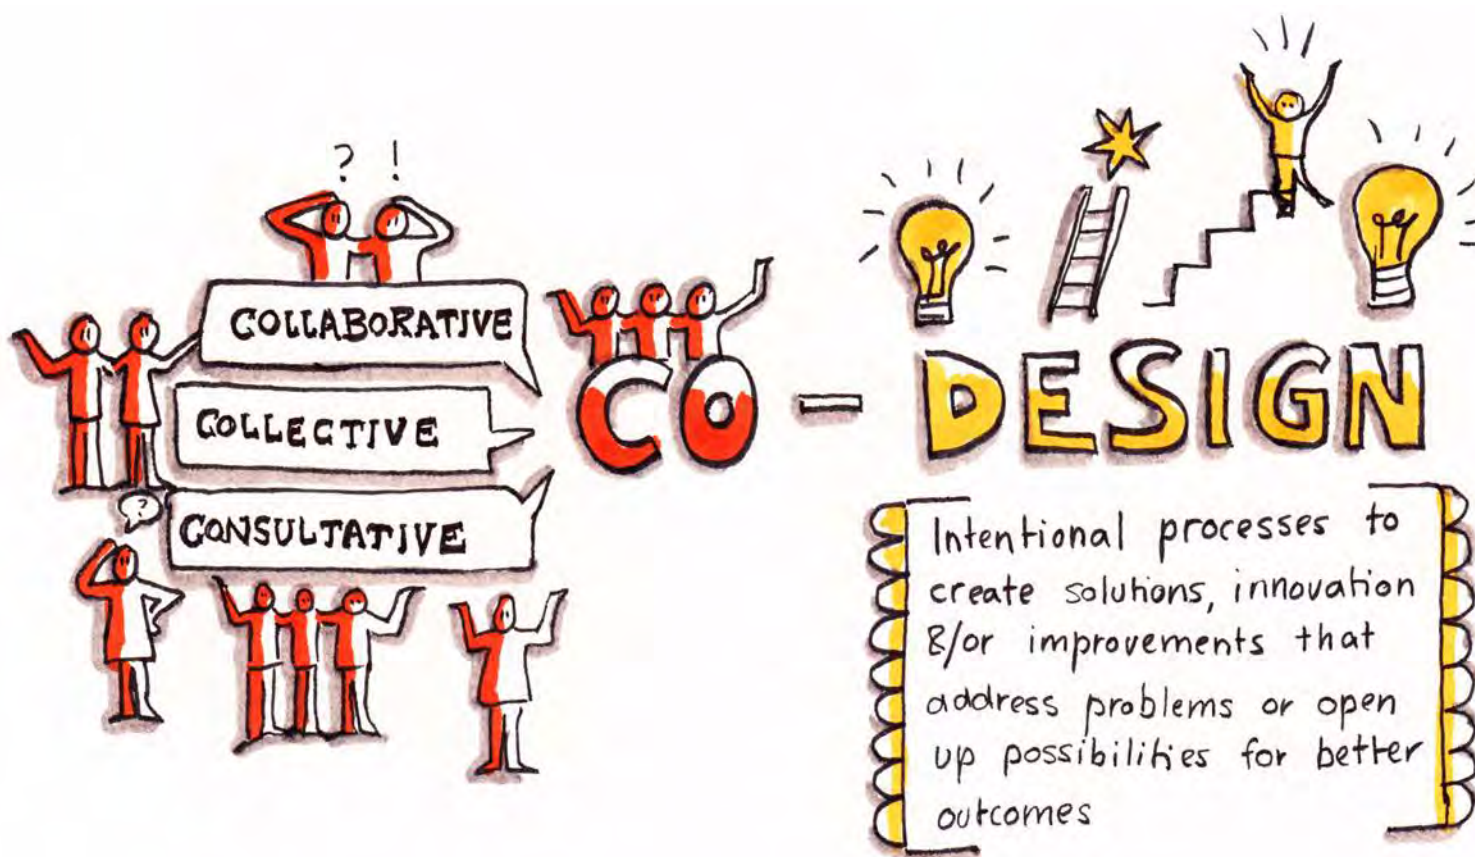 ? !
COLLABORATIVE
COLLECTIVE
?
CONSULTATIVE
CO - DESIGN
Intentional processes to
create solutions, innovation
&/or improvements that
address problems or open
up possibilities for better
outcomes